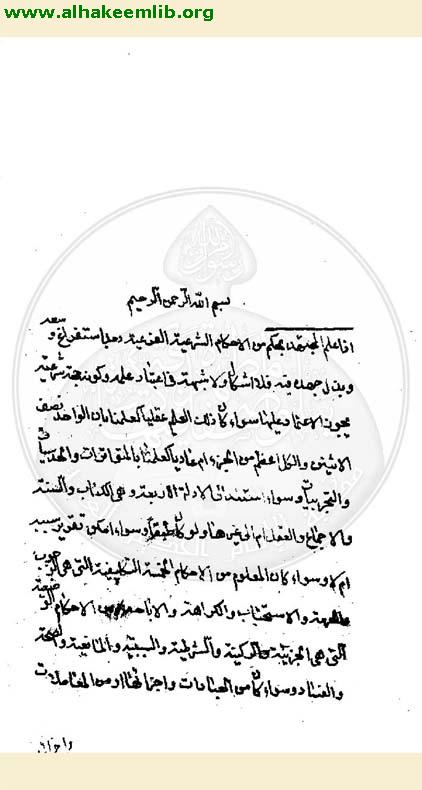 www.alhakeemlib.org
بسم الله الرحمن الرحيم
اذا علم المجتهد بحكم من الاحكام الشرعية الفرعية بعد استفراغ وسعه
وبذل جهده فيه فلا اشكال ولا شبهة في اعتبار علمه وكونه حجة شرعية
يجوز الاعتماد عليها سواء كان ذلك العلم عقليا كعلمنا بان الواحد نصف
الاثنين والكل اعظم من الجزء ام عاديا كعلمنا بالمتواترات والحدسيات
والتجربيات وسواء استند الى الادلة الاربعة وهي الكتاب والسنة
والاجماع والعقل ام الى غيرها ولو كان طبقا وسواء امكن تقرير سببه
ام لا وسواء كان المعلوم من الاحكام الخمسة التكليفية التي هي الوجوب
والحرمة والاستحباب والكراهة والاباحة من الاحكام الوضعية
التي هي الجزئية والركنية والشرطية والسببية والمانعية والصحة
والفساد وسواء كان من العبادات واجزائها او من المعاملات